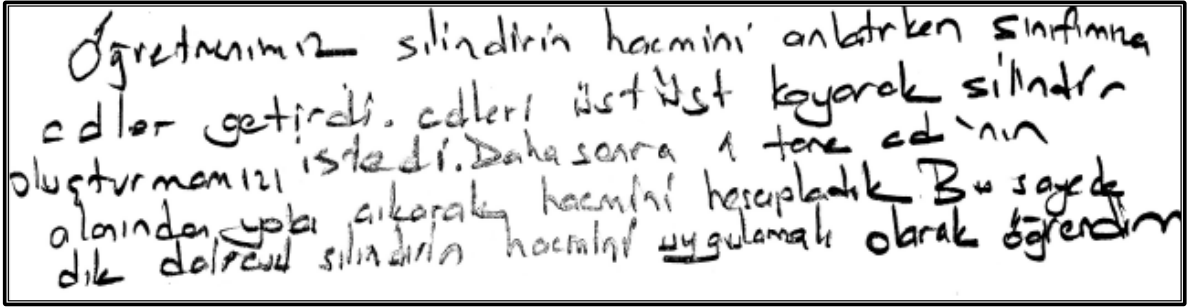 Öğretmenimiz silindirin hacmini anlatırken sınıfımıza
cdler getirdi. cdleri üst üst koyarak silindir
oluşturmamızı istedi. Daha sonra 1 tane cd'nin
alanından yola çıkarak hacmini hesapladık Bu sayede
dik dairesel silindirin hacmini uygulamalı olarak öğrendim